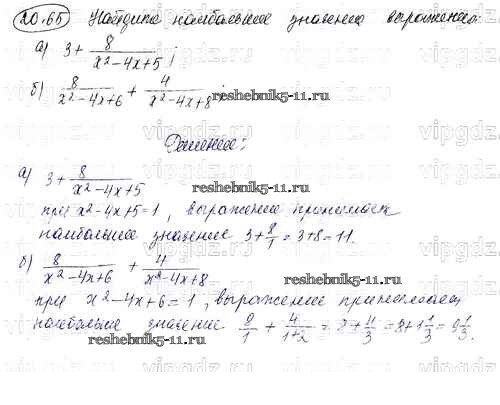 20.65 Найдите наибольшее значение выражения:
а) 3 + 8/(x² - 4x + 5);
б) 8/(x² - 4x + 6) + 4/(x² - 4x + 8);
reshebnik5-11.ru
Решение:
а) 3 + 8/(x² - 4x + 5)
reshebnik5-11.ru
при x² - 4x + 5 = 1, выражение принимает
наибольшее значение 3 + 8/1 = 3 + 8 = 11.
б) 8/(x² - 4x + 6) + 4/(x² - 4x + 8)
reshebnik5-11.ru
при x² - 4x + 6 = 1, выражение принимает
наибольше значение 8/1 + 4/(1+2) = 8 + 4/3 = 8 + 1 1/3 = 9 1/3.
reshebnik5-11.ru
vipgdz.com